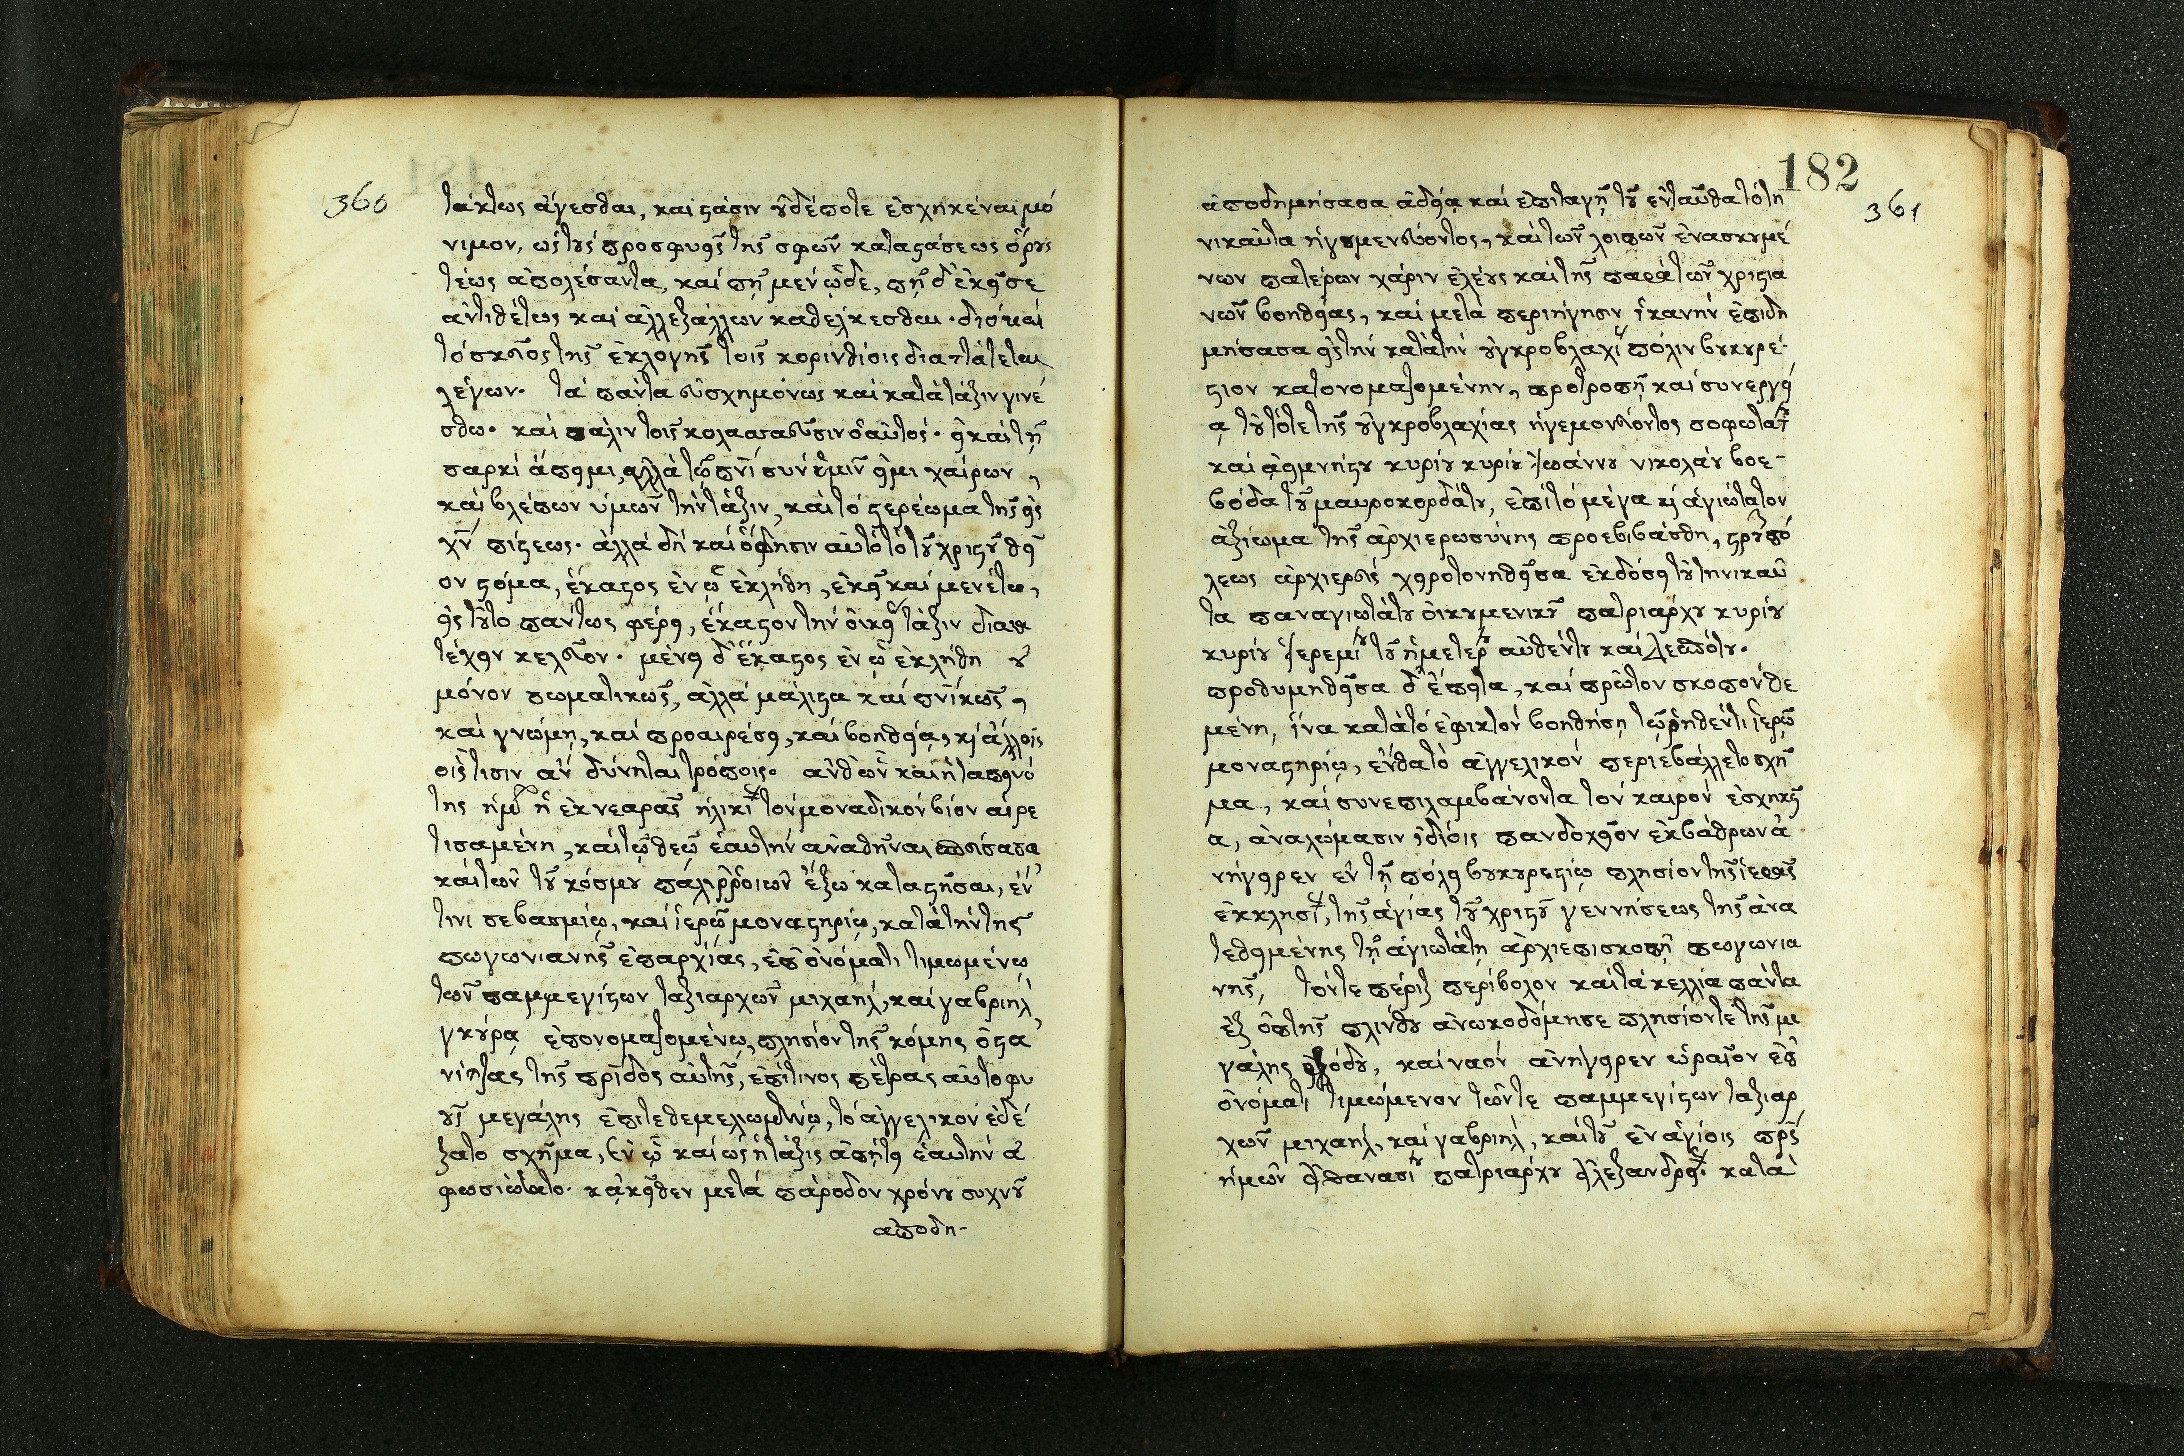 360
τάκτως ἄγεσθαι, καὶ στάσιν οὐδέποτε ἐσχηκέναι μό
νιμον, ὡς τοὺς προσφυεῖς τῆς σφῶν καταστάσεως ὅρους
τέως ἀπολέσαντα, καὶ πῆ μὲν ὧδε, πῆ δ' ἐκεῖσε
ἀντιθέτως καὶ ἀλλεξάλλων καθέλκεσθαι. διὸ καὶ
τὸ σκεῦος τῆς ἐκλογῆς τοῖς κορινθίοις διατάτεται
λέγων. τὰ πάντα εὐσχημόνως καὶ κατὰ τάξιν γινέ
σθω. καὶ πάλιν τοῖς κολασσαεῦσιν ὁ αὐτός. εἰ καὶ τῇ
σαρκὶ ἄπειμι, ἀλλὰ τῷ πνι σὺν ὑμῖν εἰμι χαίρων,
καὶ βλέπων ὑμῶν τὴν τάξιν, καὶ τὸ στερέωμα τῆς εἰς
χν πίστεως. ἀλλὰ δὴ καὶ ὅ φησιν αὐτὸ τὸ τοῦ χριστοῦ θεῖ
ον στόμα, ἕκαστος ἐν ᾧ ἐκλήθη, ἐκεῖ καὶ μενέτω,
εἰς τοῦτο πάντως φέρει, ἕκαστον τὴν οἰκεί τάξιν διακα
τέχειν κελεῦον. μένει δ' ἕκαστος ἐν ᾧ ἐκλήθη οὐ
μόνον σωματικῶς, ἀλλὰ μάλιστα καὶ πνικῶς,
καὶ γνώμῃ, καὶ προαιρέσει, καὶ βοηθείᾳ, κ ἄλλοις
οἷς τισιν ἂν δύνηται τρόποις. ἀνθ' ὧν καὶ ἡ ταπεινό
της ἡμ ἡ ἐκ νεαρᾶς ἡλικί τὸν μοναδικὸν βίον αἱρε
τισαμένη, καὶ τῷ θεῷ ἑαυτὴν ἀναθῆναι ποιήσασα
καὶ τῶν τοῦ κόσμου παλιρροιῶν ἔξω καταστῆσαι, ἔν
τινι σεβασμίῳ, καὶ ἱερῷ μοναστηρίῳ, κατὰ τὴν τῆς
πωγωνιανῆς ἐπαρχίας, ἐπ' ὀνόματι τιμωμένῳ
τῶν παμμεγίστων ταξιαρχῶν μιχαηλ, καὶ γαβριηλ,
γκούρα ἐπονομαζομένῳ, πλησίον τῆς κώμης ὀστα
νίτζας τῆς πρίδος αὐτῆς, ἐπί τινος πέτρας αὐτοφυ
οῦς μεγάλης ἐπιτεθεμελιωμένῳ, τὸ ἀγγελικὸν ἐδέ
ξατο σχῆμα, ἐν ᾧ καὶ ὡς ἡ τάξις ἀπῄτει ἑαυτὴν ἀ
φωσιώσατο. κἀκεῖθεν μετὰ πάροδον χρόνου συχνοῦ
αποδη-
182
361
ἀποδημήσασα ἀδείᾳ καὶ ἐπιταγῇ τοῦ ἐνταῦθα τότη
νικαῦτα ἡγουμενεύοντος, καὶ τῶν λοιπῶν ἐνασκουμέ
νων πατέρων χάριν ἐλέους καὶ τῆς παρὰ τῶν χριστια
νῶν βοηθείας, καὶ μετὰ περιήγησιν ἱκανὴν ἐπιδη
μήσασα εἰς τὴν κατὰ τὴν οὑγκροβλαχί πόλιν βουκουρέ-
στιον κατονομαζομένην, προτροπῇ καὶ συνεργεί
ᾳ τοῦ τότε τῆς οὑγκροβλαχίας ἡγεμονεύοντος σοφωτάτ
καὶ ἀειμνήστου κυρίου κυρίου ἰωάννου νικολάου βοε-
βόδα τοῦ μαυροκορδάτου, ἐπὶ τὸ μέγα κ ἁγιώτατον
ἀξίωμα τῆς ἀρχιερωσύνης προεβιβάσθη, στρουπό
λεως ἀρχιερεὺς χειροτονηθεῖσα ἐκδόσει τοῦ τηνικαῦ
τα παναγιωτάτου οἰκουμενικοῦ πατριάρχου κυρίου
κυρίου ἱερεμί τοῦ ἡμετέρ αὐθέντου καὶ δεσπότου.
προθυμηθεῖσα δ' ἔπειτα, καὶ πρῶτον σκοπὸν θε
μένη, ἵνα κατὰ τὸ ἐφικτὸν βοηθήσῃ τῷ ῥηθέντι ἱερῷ
μοναστηρίῳ, ἔνθα τὸ ἀγγελικὸν περιεβάλλετο σχῆ
μα, καὶ συνεπιλαμβάνοντα τὸν καιρὸν ἐσχηκυῖ
α, ἀναλώμασιν ἰδίοις πανδοχεῖον ἐκ βάθρων ἀ
νήγειρεν ἐν τῇ πόλει βουκουρεστίῳ πλησίον τῆς ἱερᾶς
ἐκκλησί, τῆς ἁγίας τοῦ χριστοῦ γεννήσεως τῆς ἀνα
τεθειμένης τῇ ἁγιωτάτῃ ἀρχιεπισκοπῇ πωγωνια
νῆς, τόν τε πέριξ περίβολον καὶ τὰ κελλία πάντα
ἐξ ὀπτῆς πλίνθου ἀνῳκοδόμησε πλησίον τε τῆς με
γάλης ὁδοῦ, καὶ ναὸν ἀνήγειρεν ὡραῖον ἐπ'
ὀνόματι τιμώμενον τῶν τε παμμεγίστων ταξιαρ
χῶν μιχαηλ, καὶ γαβριηλ, καὶ τοῦ ἐν ἁγίοις πρς
ἡμῶν ἀθανασί πατριάρχου ἀλεξανδρεί. κατὰ